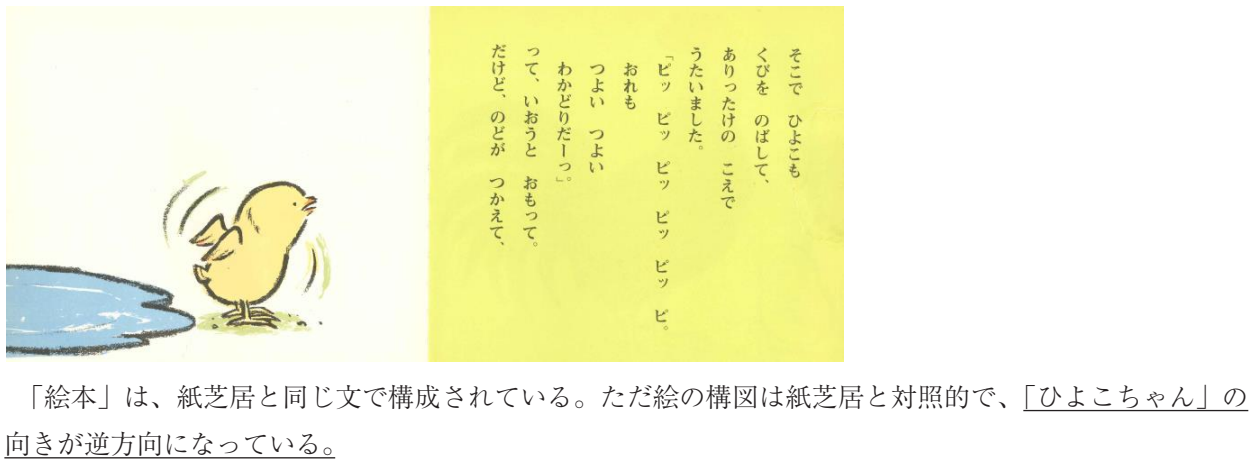 そこで　ひよこも
くびを　のばして、
ありったけの　こえで
うたいました。
「ピッ　ピッ　ピッ　ピッ　ピッ　ピ。
おれも
つよい　つよい
わかどりだーっ」。
って、いおうと　おもって。
だけど、のどが　つかえて、
「絵本」は、紙芝居と同じ文で構成されている。ただ絵の構図は紙芝居と対照的で、「ひよこちゃん」の
向きが逆方向になっている。